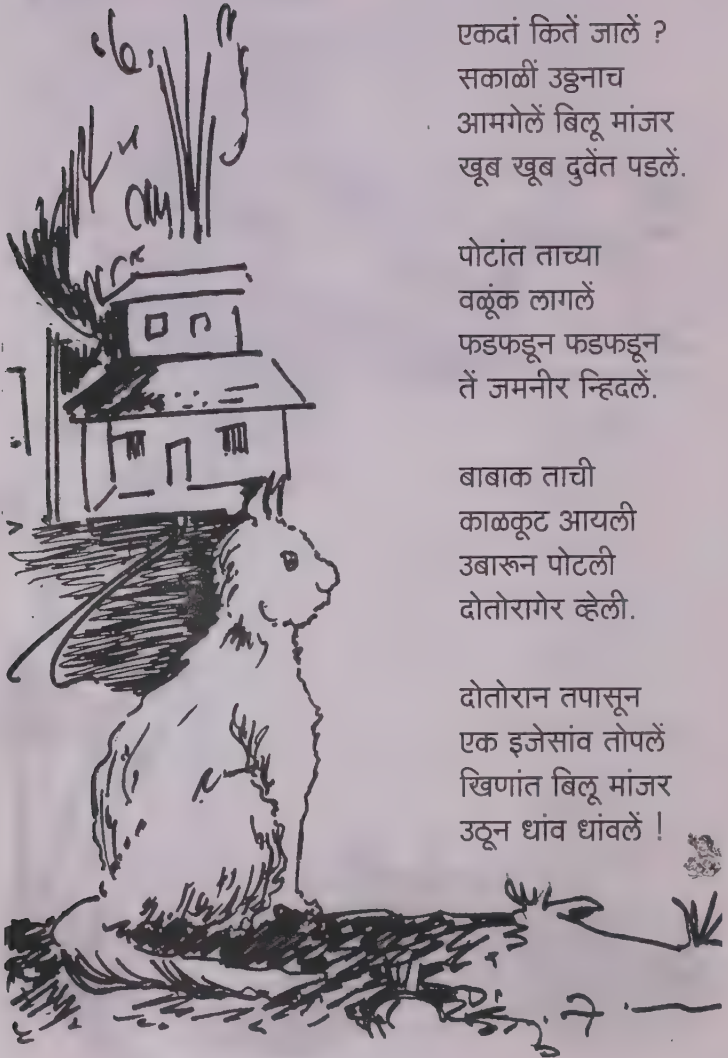 एकदां कितें जालें ?
सकाळीं उठ्ठनाच
आमगेलें बिलू मांजर
खूब खूब दुवेंत पडलें.
पोटांत ताच्या
वळूंक लागलें
फडफडून फडफडून
तें जमनीर न्हिदलें.
बाबाक ताची
काळकूट आयली
उबारून पोटली
दोतोरागेर व्हेली.
दोतोरान तपासून
एक इजेसांव तोपलें
खिणांत बिलू मांजर
उठून धांव धांवलें !